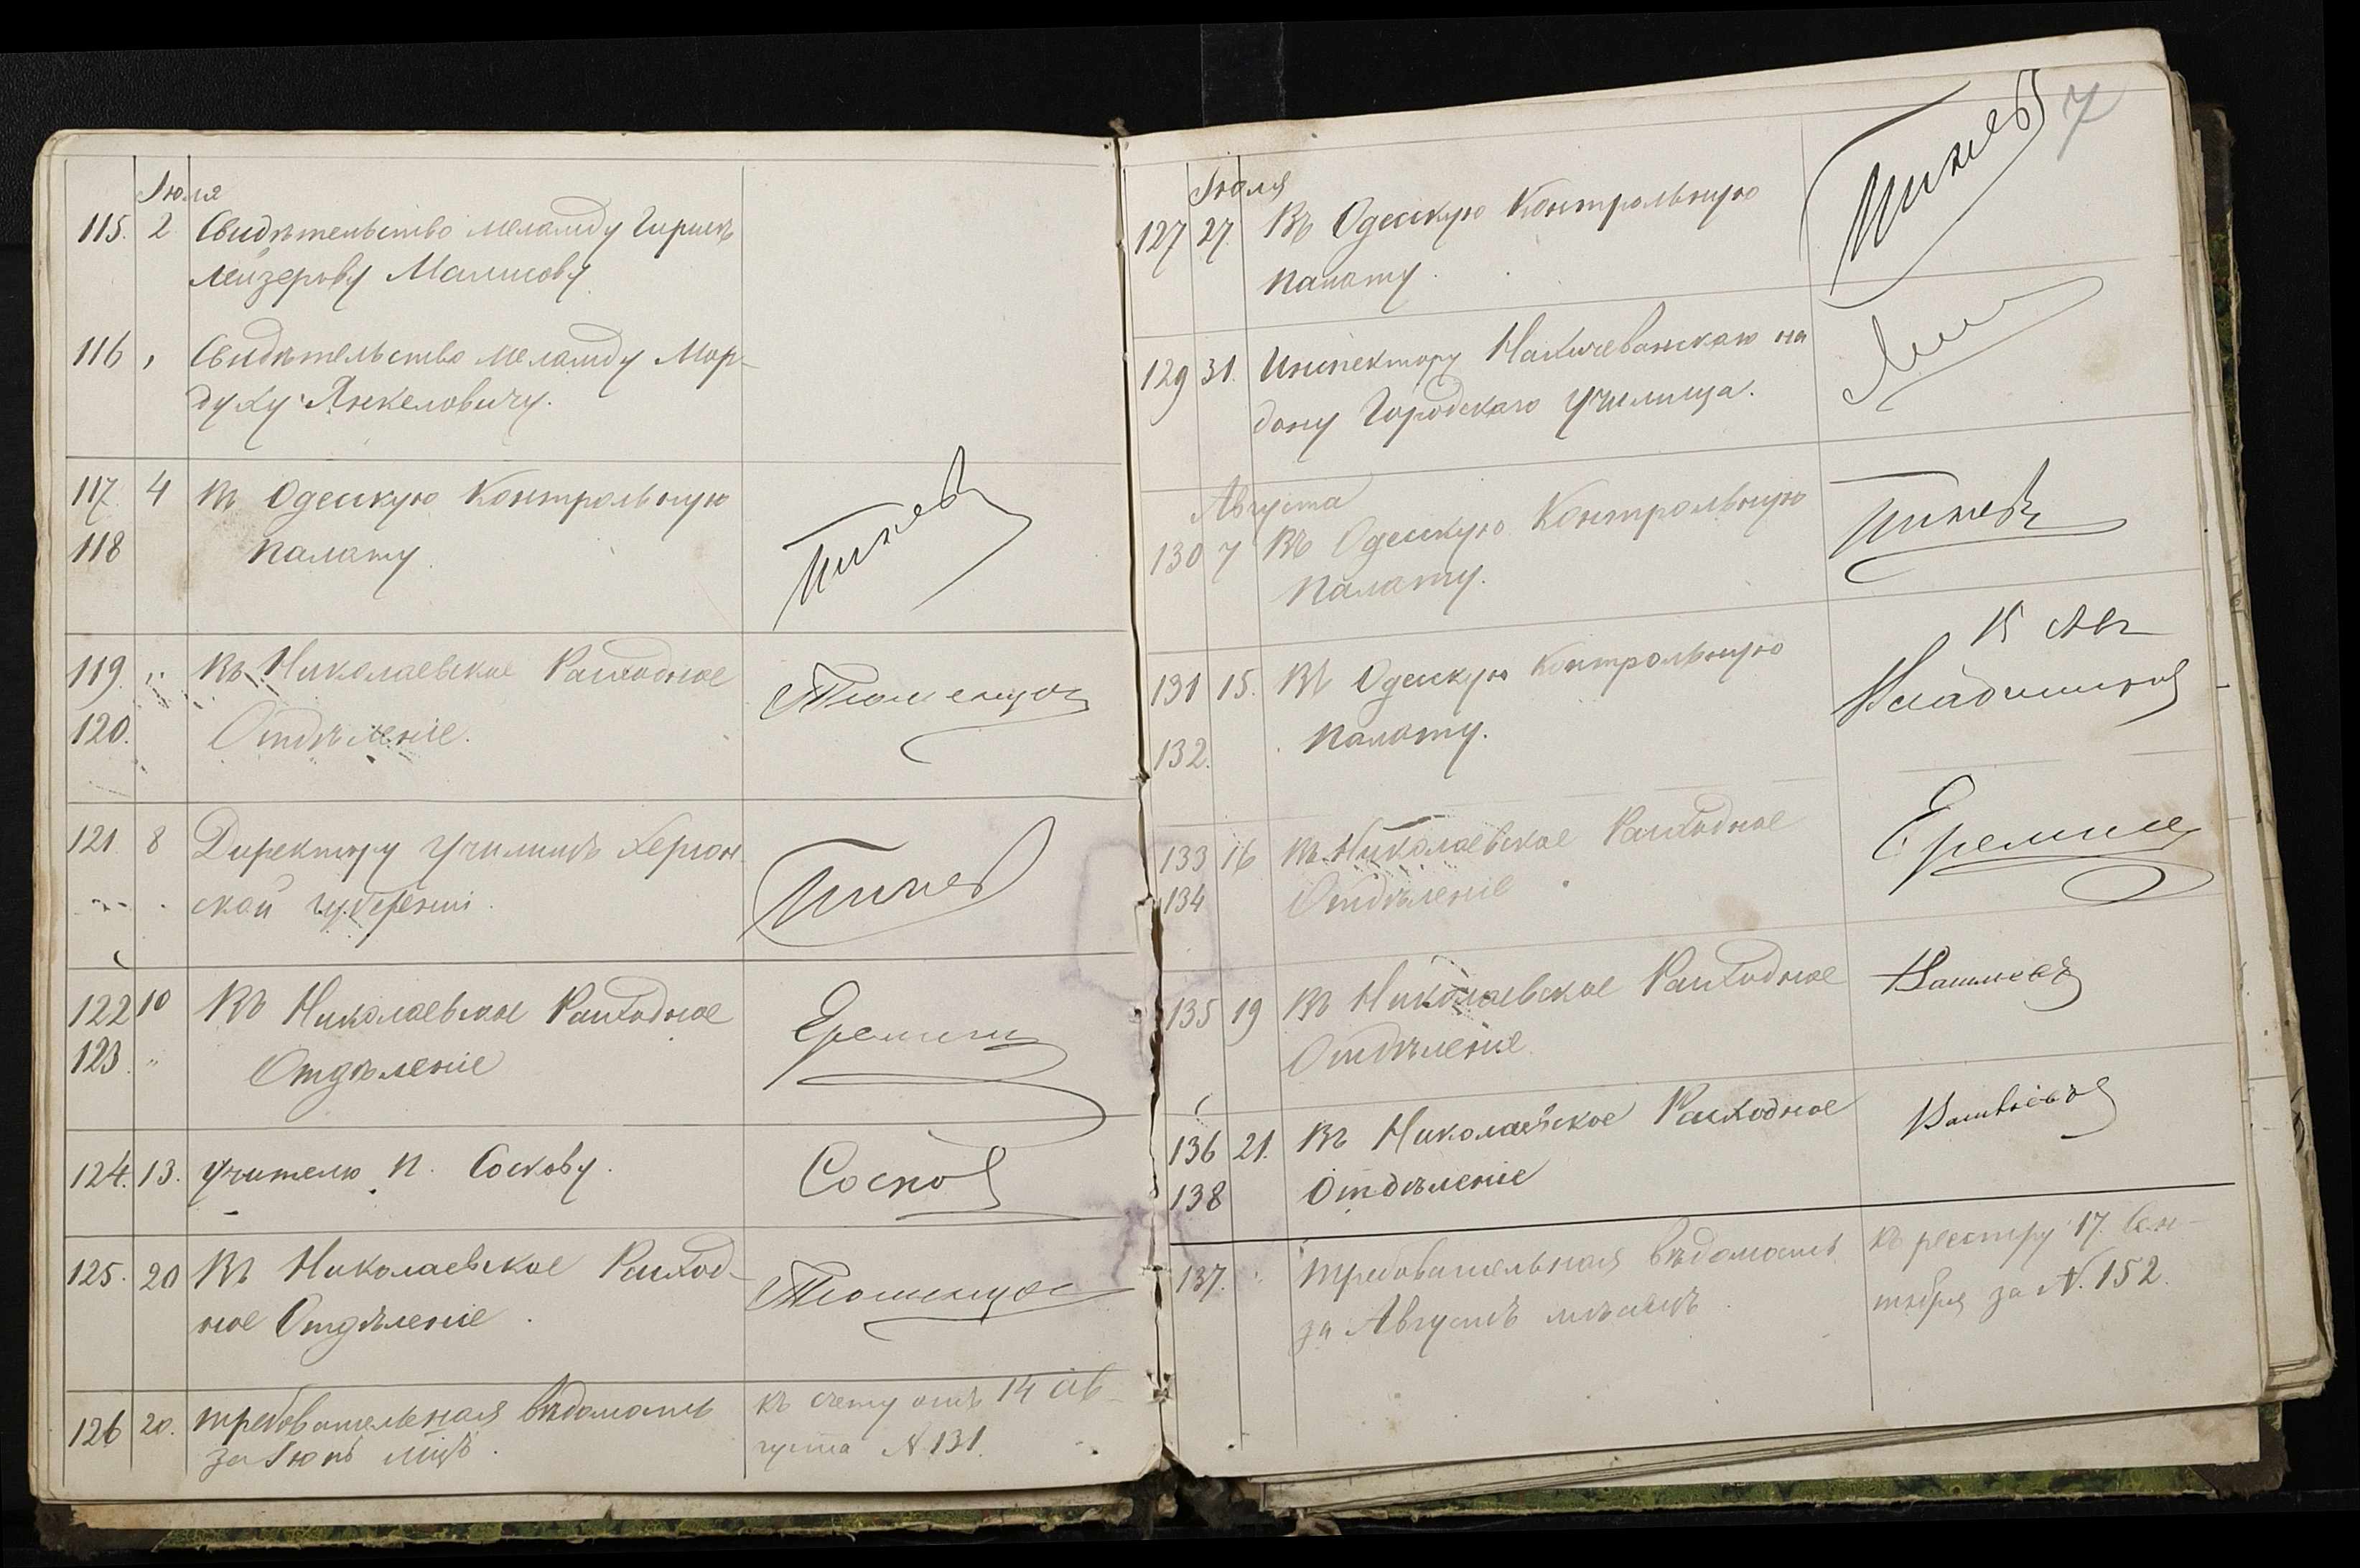 Іюля
115. 2 Свидѣтельство меламду Гиршѣ
Лейзерову Малисову
116 , Свидѣтельство меламду Мор-
духу Янкеловичу.
117. 4 Въ Одесскую Контрольную
118 Палату.
119. „ Въ Николаевское Расходное
120. Отдѣленіе.
121. 8 Директору Училищъ Херсон-
ской губерніи.
122 10 Въ Николаевское Расходное
123. „ Отдѣленіе
Еремин
124. 13. Учителю П. Соскову.
Сосков
125. 20 Въ Николаевское Расход-
ное Отдѣленіе.
126 20. Требовательная вѣдомость къ счету отъ 14 Ав-
за Іюль мѣц. густа N 131.
7
Іюля
127 27. Въ Одесскую Контрольную
Палату.
129 31. Инспектору Нахичеванскаго на
дону Городскаго Училища.
Августа
130 7 Въ Одесскую Контрольную
Палату.
15 Авг
131 15. Въ Одесскую Контрольную
132. Палату.
133 16 Въ Николаевское Расходное
134 Отдѣленіе
Еремин
135 19 Въ Николаевское Расходное
Отдѣленіе.
136 21. Въ Николаевское Расходное
138 Отдѣленіе
137. „ Требовательная вѣдомость къ реестру 17. Сен-
за Августъ мѣсяцъ. тября за N. 152.